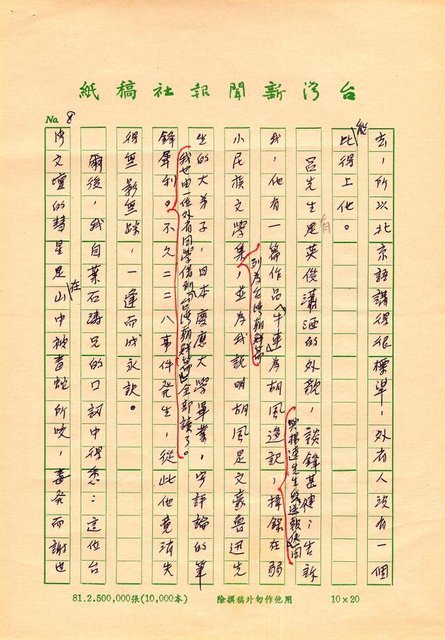 台灣新聞報社稿紙
No. 8
去,所以北京語講得很標準,外省人沒有一個
能比得上他。
呂先生是有英俊瀟洒的外貌,談鋒甚健;告訴
我,他有一篇作品「牛車」為胡風逸記,揖錄在弱
與楊逵先生氣送報伕同
列為台灣朝鮮篇
小民族文學集,並為我說明胡風是文豪魯迅先
生的大弟子,日本慶應大學畢業,寫評論的筆
我也由一位外省同學借到台灣朝鮮篇全部讀了。
鋒犀利。不久二二八事件發生,從此他竟消失
得無影無踪,一逢而成永訣。
爾後,我自葉石濤兄的口詞中得悉:這位台
灣文壇的彗星是在山中被青蛇所咬,毒發而謝世
81.2.500,000張(10,000本)
除撰稿外勿作他用
10×20